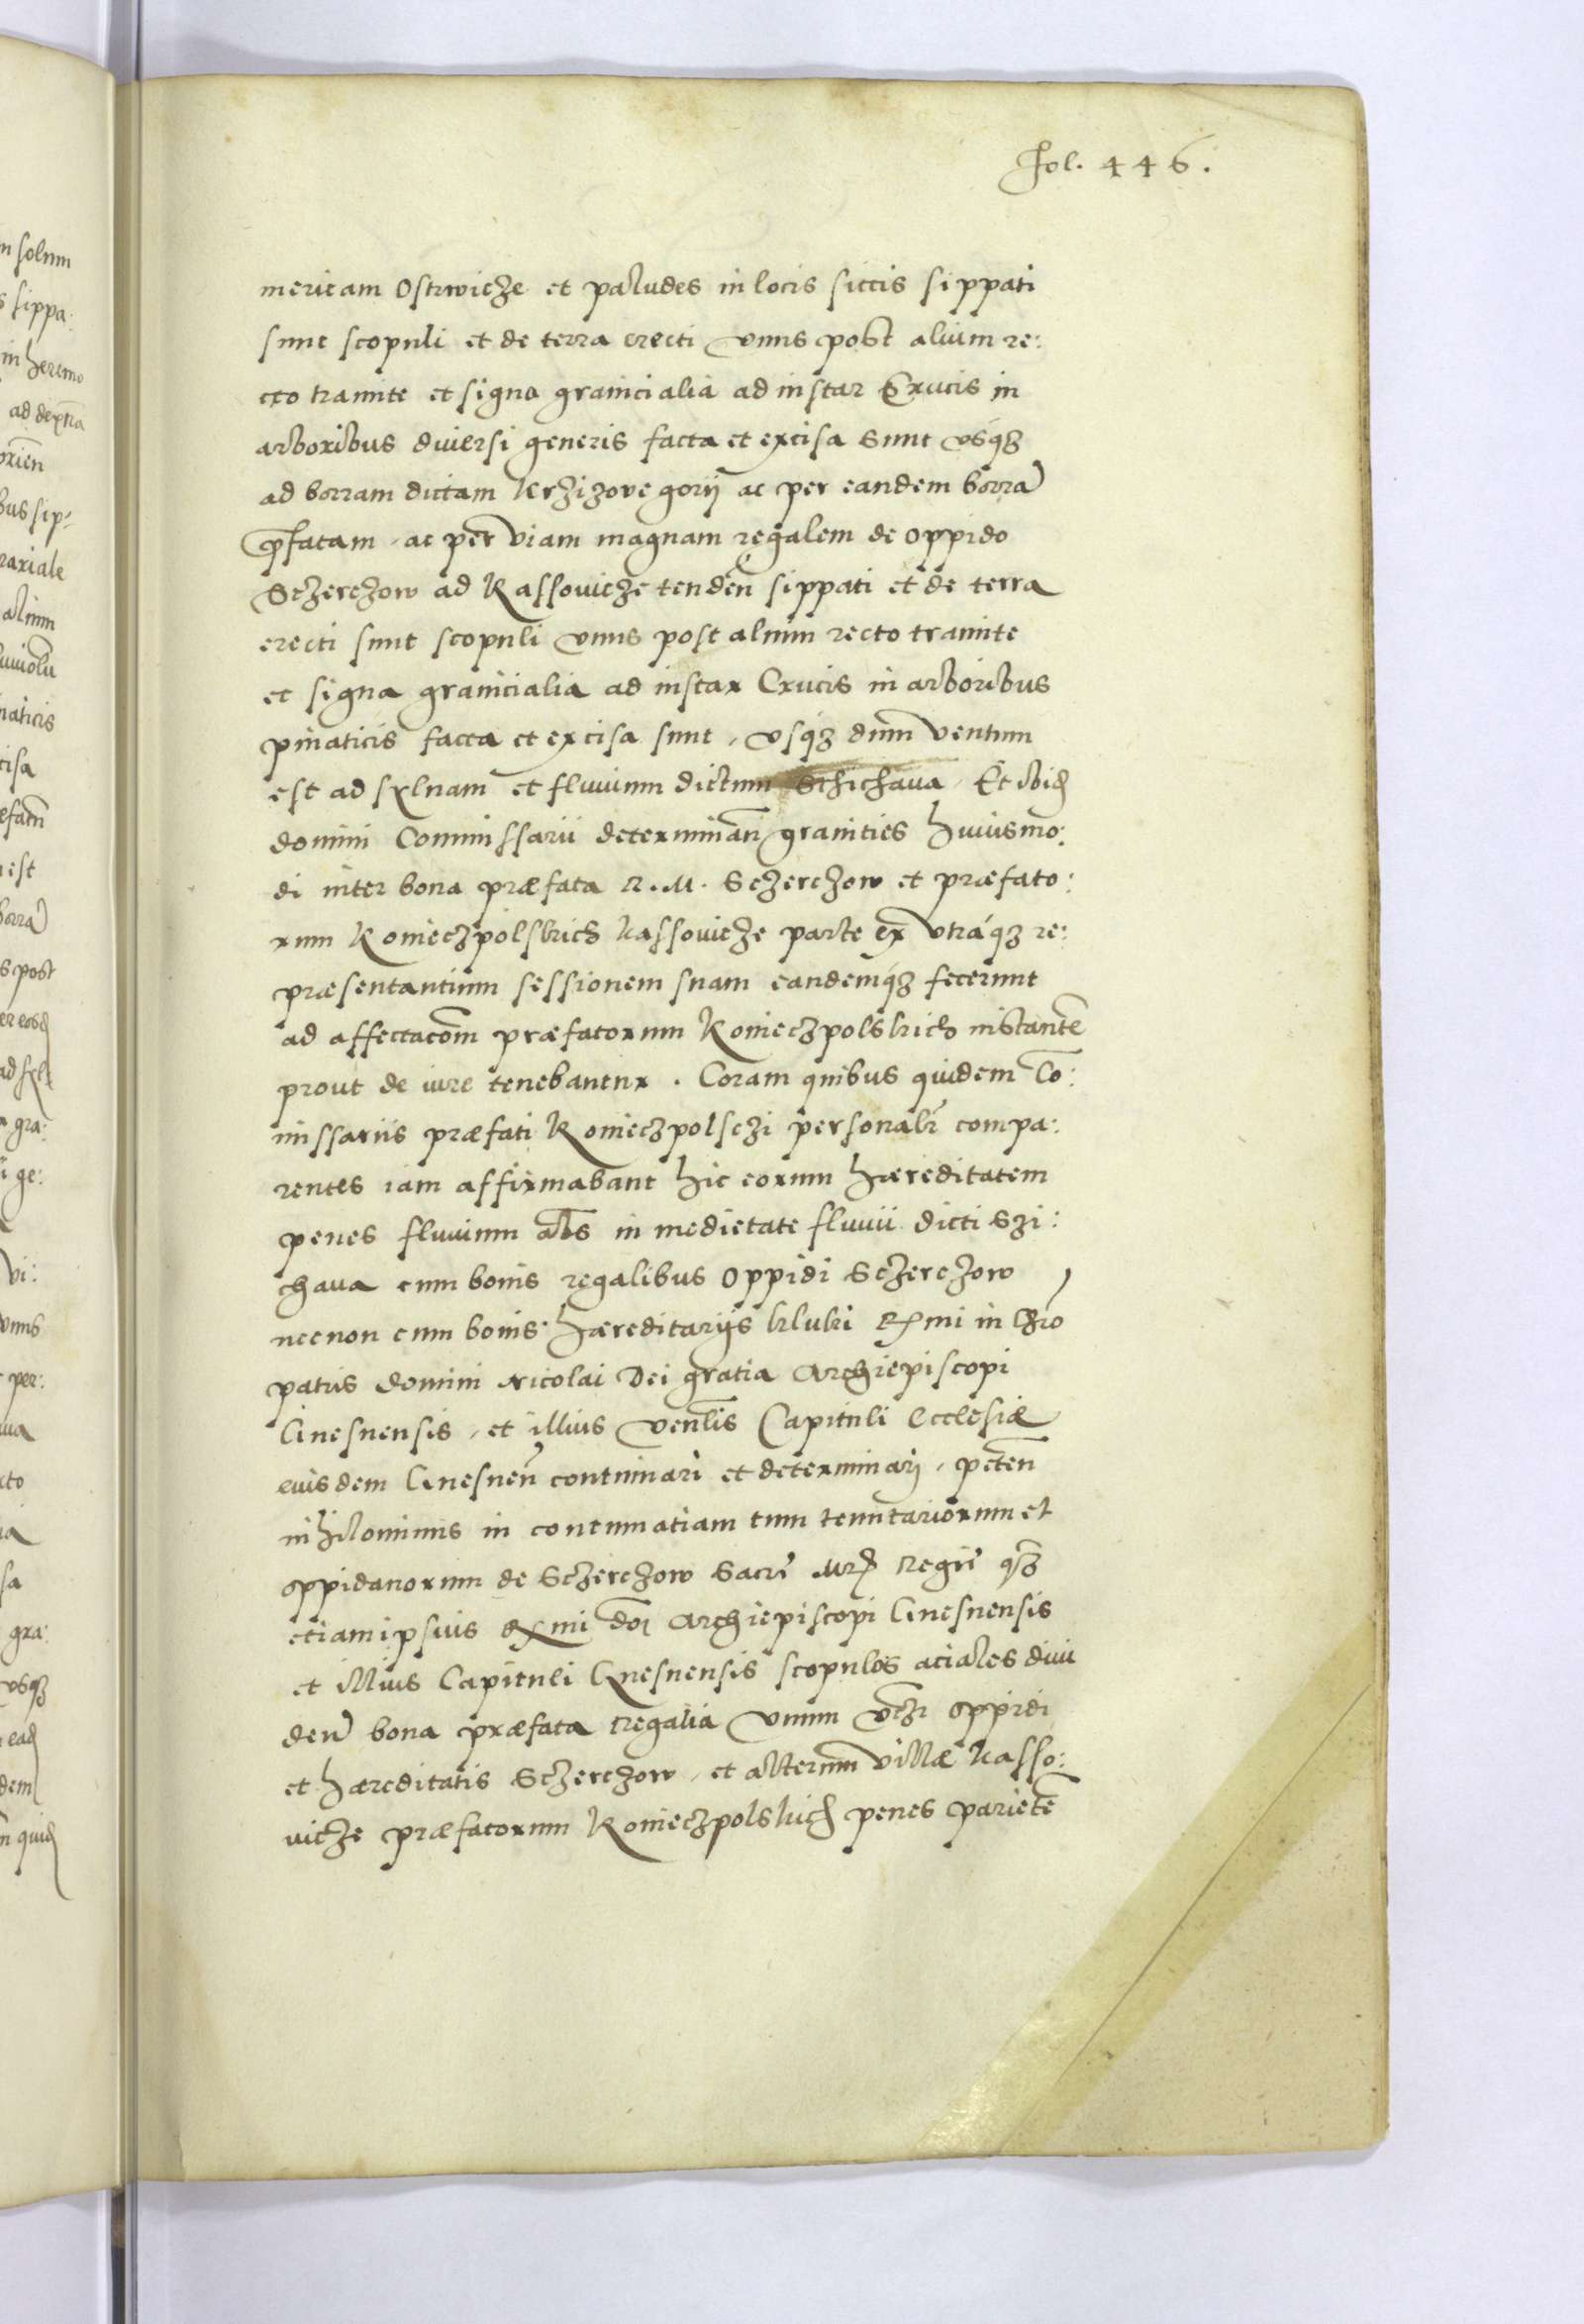 Fol. 446.
mericam Ostrwicze et paludes in locis siccis sippati
sunt scopuli et de terra erecti vnus post alium re:
cto tramite et signa granicialia ad instar Crucis in
arboribus diuersi generis facta et excisa sunt vsq3
ad borram dictam Krzizove gorij ac per eandem borrã
p̃fatam, ac per viam magnam regalem de oppido
Sczerczow ad Kassouicze tendeñ sippati et de terra
erecti sunt scopuli vnus post alium recto tramite
et signa granicialia ad instar Crucis in arboribus
pinaticis facta et excisa sunt, vsq3 dum ventum
est ad syluam et fluuium dictum Schichaua, Et ibid
domini Commissarii determinañ granicies huiusmo:
di inter bona præfata R. M. Sczerczow et præfato:
rum Konieczpolskich Kassouicze parte ex vtráq3 re:
præsentantium sessionem suam eandemq3 fecerunt
ad affectacõm præfatorum Konieczpolskich instantẽ
prout de iure tenebantur. Coram quibus quidem Cõ:
missariis præfati Koniecpolsczi personalr̃ compa:
rentes iam affirmabant hic eorum hæreditatem
penes fluuium als in medietate fluuii dicti Szi:
chaua cum bonis regalibus oppidi Sczerczow
necnon cum bonis hæreditarijs kluki Rxmi in chrõ
patris domini Nicolai Dei gratia Archiepiscopi
Gnesnensis, et illius venlis Capituli Ecclesiæ
eiusdem Gnesneñ continuari et determinari, peteñ
nihilominus in contumatiam tum tenutariorum et
oppidanorum de Sczerczow Sacrẽ Mtis Regiẽ q3
etiam ipsius Rxmi dõi Archiepiscopi Gnesnensis
et illius Capituli Gnesnensis scopulos aciales diui
deñ bona præfata Regalia vnum vcz oppidi
et hæreditatis Sczerczow, et alterum villæ Kasso:
uicze præfatorum Koniecpolskich penes parietẽ
n solum
s sippa:
in heremo
ad dextrã
bus sip:
alium
naticis
cisa
est
borrã
s post
gra:
ge:
vi:
vnus
per:
cto
sa
gra:
vsq3
ead
dem
quid